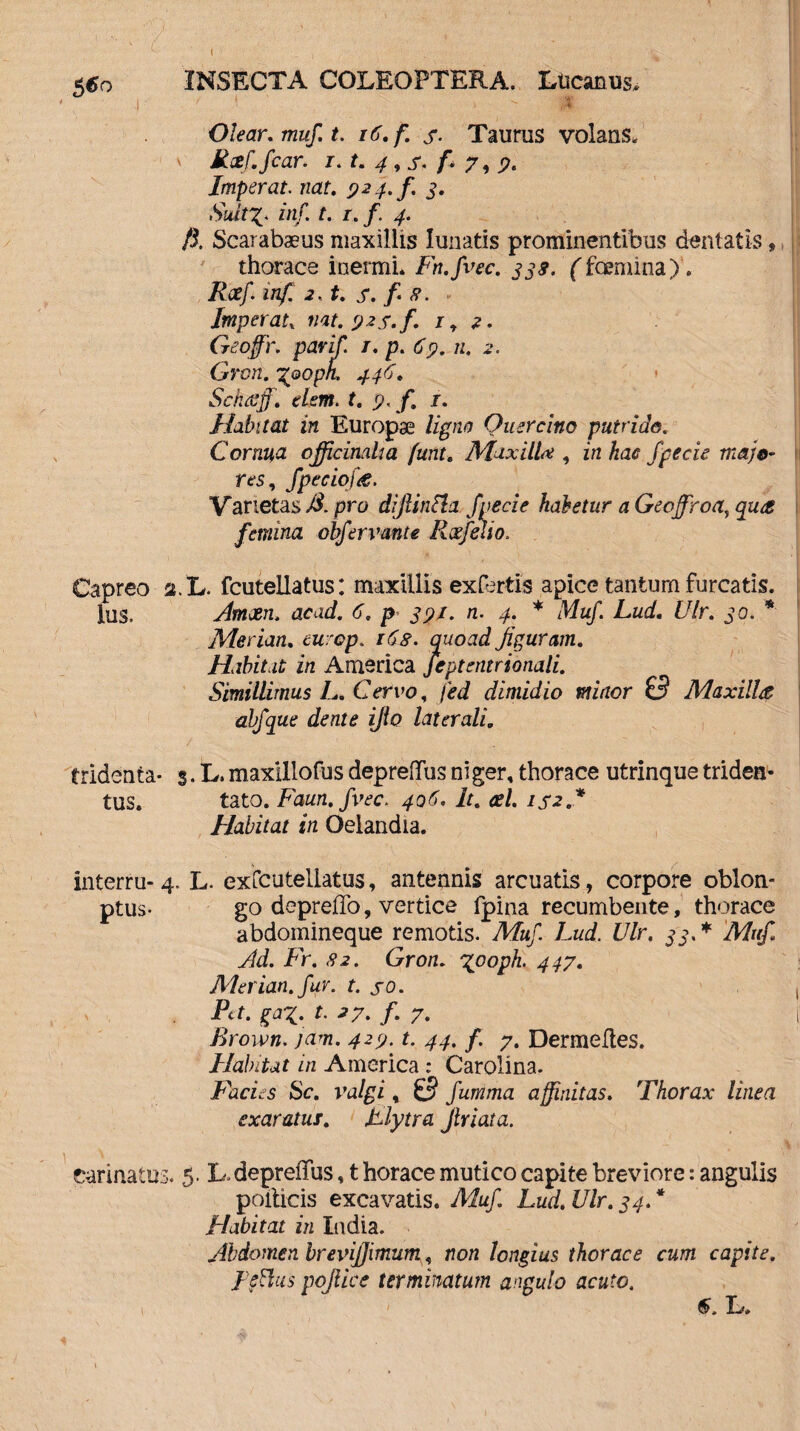 560 INSECTA COLEOPTERA. Lucanus.
Olear. muſ. t. 16. f. 5. Taurus volans.
Rœſ. ſcar. 1. t. 4, 5. f. 7, 9.
Imperat. nat. 924. f. 3.
Sultz. inſ. t. 1. f. 4.
β. Scarabæus maxillis lunatis prominentibus dentatis,
thorace inermi. Fn. ſvec. 338. (fœmina).
Rœſ. inſ. 2. t. 5. f. 8.
Imperat. nat. 925. f. 1, 2.
Geoffr. pariſ. 1. p. 69. n. 2.
Gron. zooph. 446.
Schæff. elem. t. 9. f. 1.
Habitat in Europæ ligno Quercino putrido.
Cornua officinalia ſunt. Maxillæ, in hac ſpecie majo-
res, ſpecioſæ.
Varietas β. pro diſtincta ſpecie habetur a Geoffroa, quæ
femina obſervante Rœſelio.
Capreo 2. L. ſcutellatus: maxillis exſertis apice tantum furcatis.
lus. Amœn. acad. 6. p 391. n. 4. * Muſ. Lud. Ulr. 30. *
Merian. europ. 168. quoad figuram.
Habitat in America ſeptentrionali.
Simillimus L. Cervo, ſed dimidio minor & Maxillæ
abſque dente iſto laterali.
tridenta- 3. L. maxilloſus depreſſus niger, thorace utrinque triden-
tus. tato. Faun. ſvec. 406. It. œl. 152.*
Habitat in Oelandia.
interru- 4. L. exſcutellatus, antennis arcuatis, corpore oblon-
ptus. go depreſſo, vertice ſpina recumbente, thorace
abdomineque remotis. Muſ. Lud. Ulr. 33.* Muſ.
Ad. Fr. 82. Gron. zooph. 447.
Merian. ſur. t. 50.
Pet. gaz. t. 27. f. 7.
Brown. jam. 429. t. 44. f. 7. Dermeſtes.
Habitat in America: Carolina.
Facies Sc. valgi, & ſumma affinitas. Thorax linea
exaratus. Elytra ſtriata.
carinatus. 5. L. depreſſus, thorace mutico capite breviore: angulis
poſticis excavatis. Muſ. Lud. Ulr. 34.*
Habitat in India.
Abdomen breviſſimum, non longius thorace cum capite.
Pectus poſtice terminatum angulo acuto.
6. L.